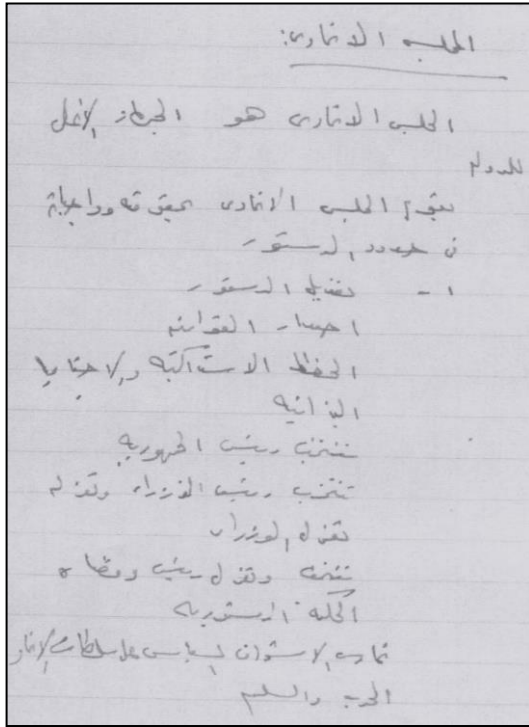 المجلس الاتحادى:
المجلس الاتحادى هو الجهاز الأعلى
للدولة
يقوم المجلس الاتحادى بحقوقه وواجباته
فى حدود الدستور
١- تعديل الدستور
اصدار القوانين
الخطط الاشتراكية والاجتماعية
الميزانية
تنتخب رئيس الجمهورية
تنتخب رئيس الوزراء وتعزله
تعزل الوزراء
تنتخب وتعزل رئيس وقضاة
المحكمة الدستورية
تمارس الاشراف السياسى على سلطات الاتحاد
الحرب والسلم